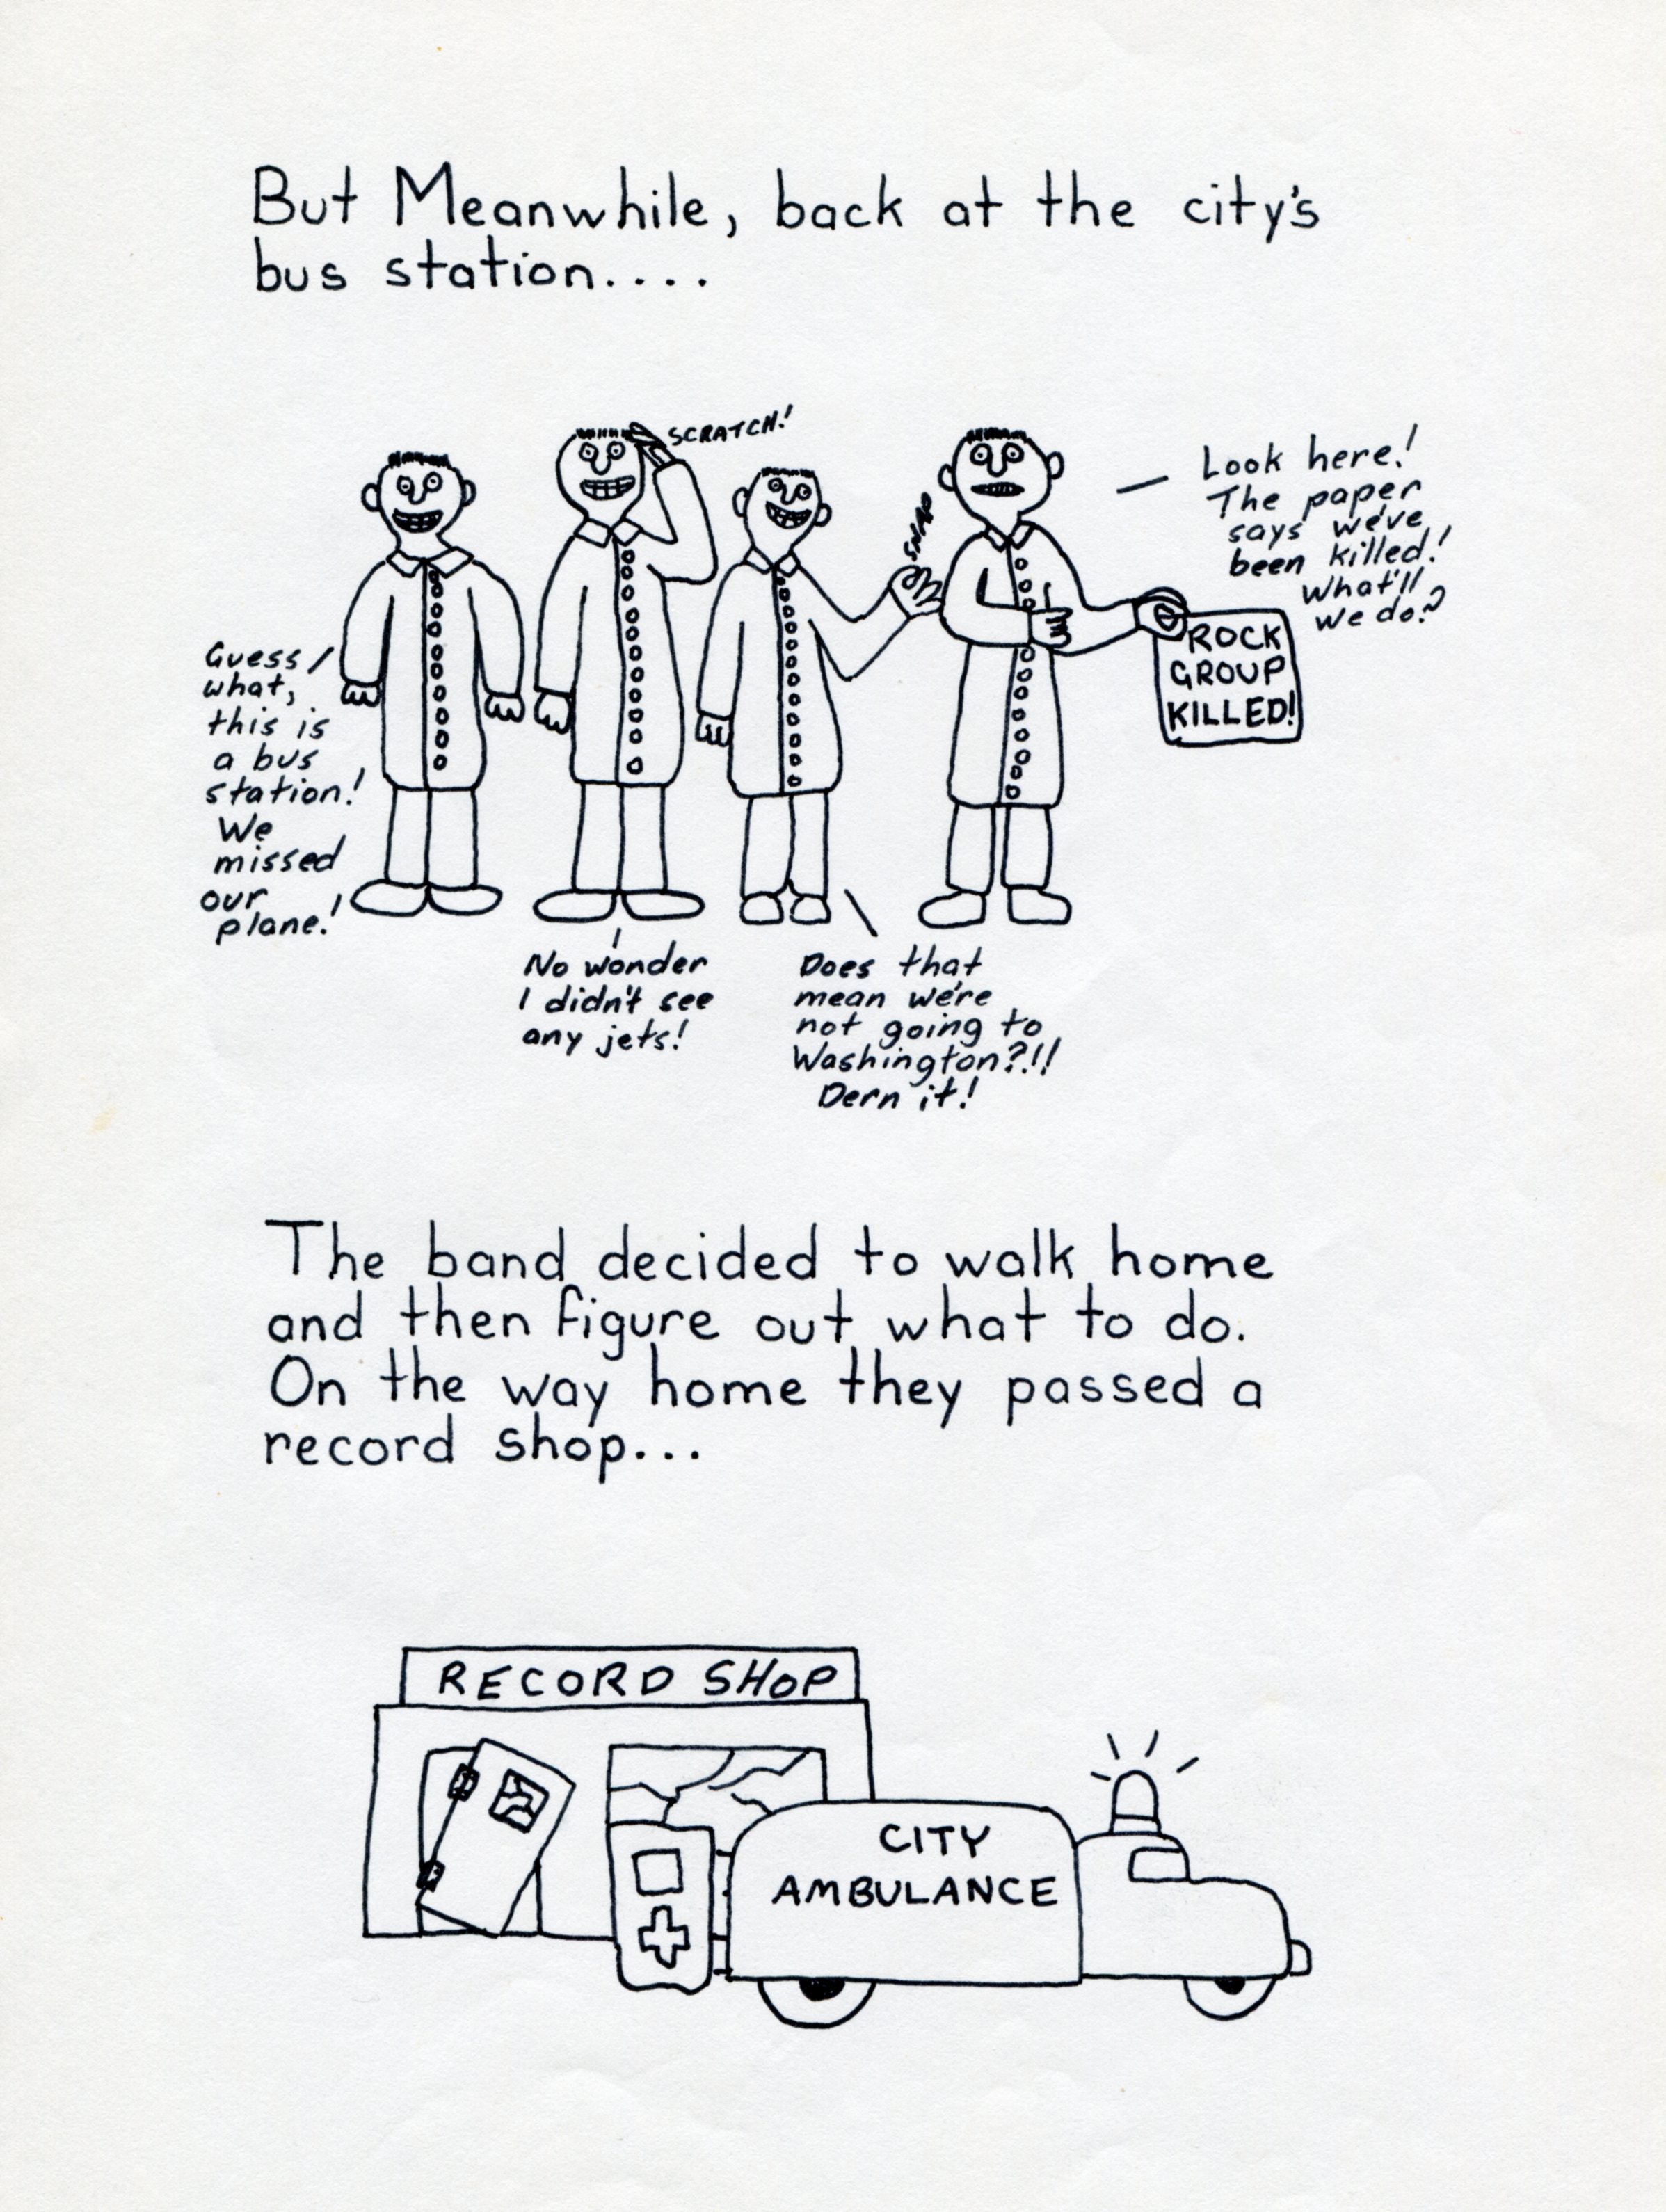 But Meanwhile, back at the city's
bus station....
SCRATCH!
SNAP
Look here!
The paper
says we've
been killed!
What'll
we do?
ROCK
GROUP
KILLED!
Guess
what,
this is
a bus
station!
We
missed
our
plane!
No wonder
I didn't see
any jets!
Does that
mean we're
not going to
Washington?!!
Dern it!
The band decided to walk home
and then figure out what to do.
On the way home they passed a
record shop...
RECORD SHOP
CITY
AMBULANCE